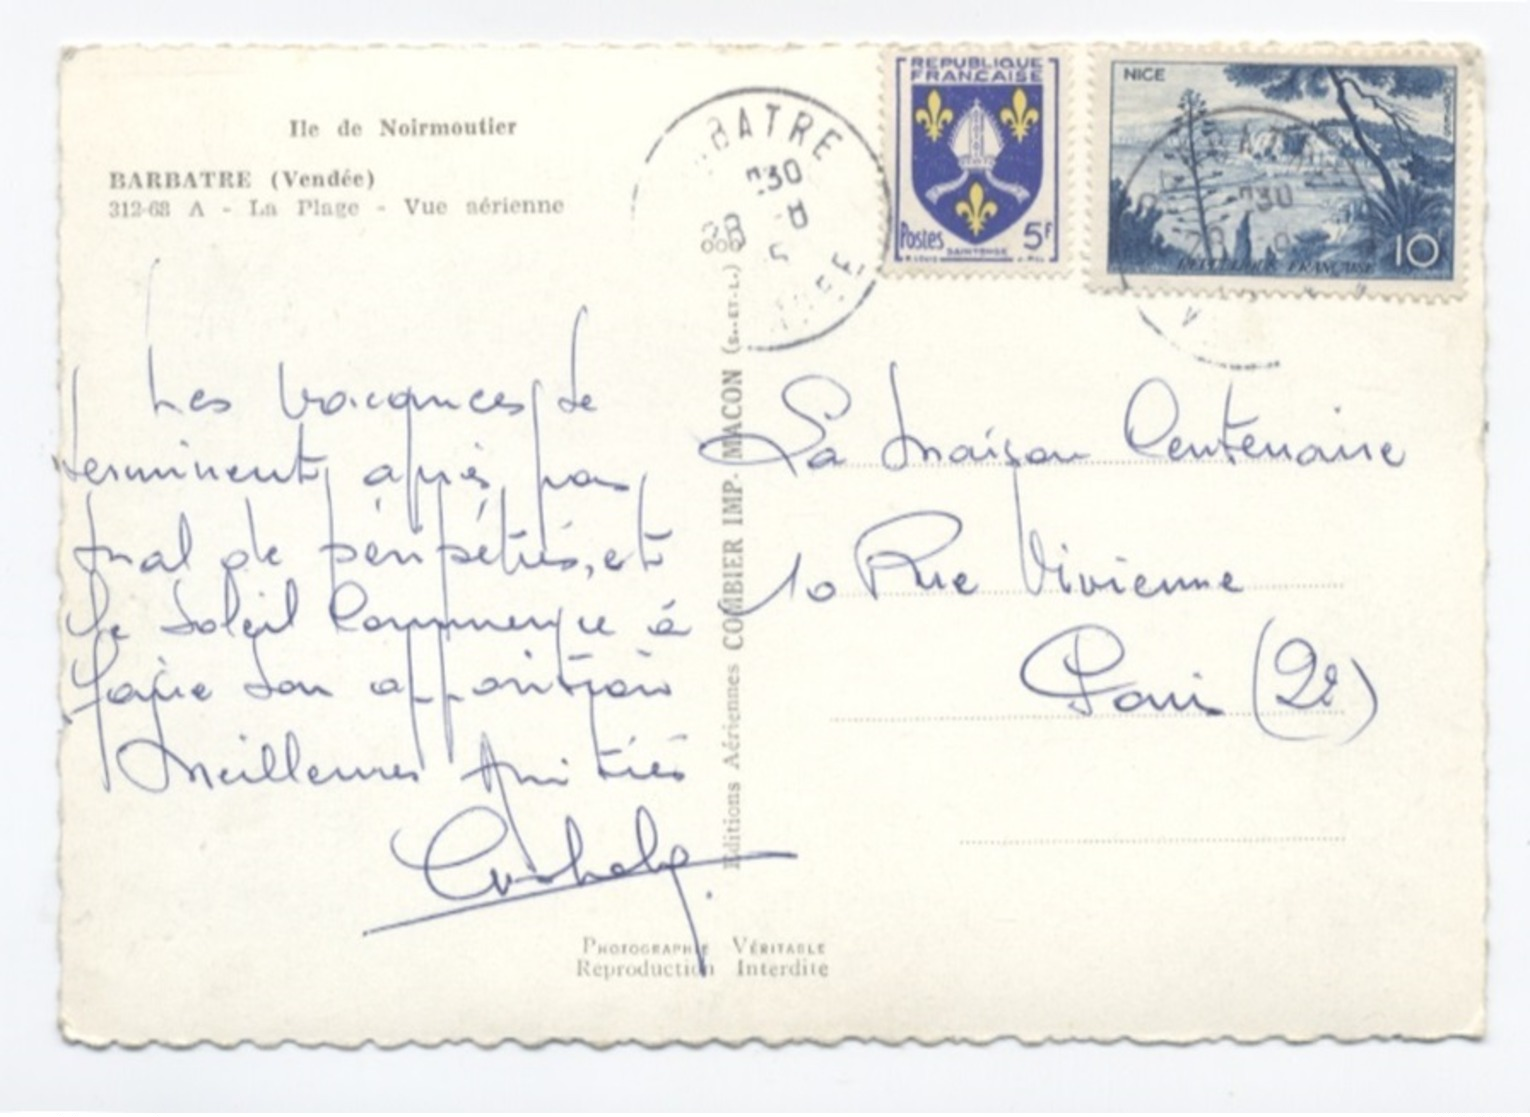 Ile de Noirmoutier
BARBATRE (Vendée)
312-68 A - La Plage - Vue aérienne
BATRE
30
28 -8
5
REPUBLIQUE
FRANÇAISE
Postes 5F
SAINTONGE
NICE
POSTES
30
28
REPUBLIQUE FRANÇAISE 10
Les vacances se
terminent, après pas
mal de péripéties, et
le soleil commence à
faire son apparition
Meilleures Amitiés
Editions Aériennes COMBIER IMP. MACON (S.-ET-L.)
La Maison Centenaire
10 Rue Vivienne
Paris (2e)
PHOTOGRAPHIE VÉRITABLE
Reproduction Interdite